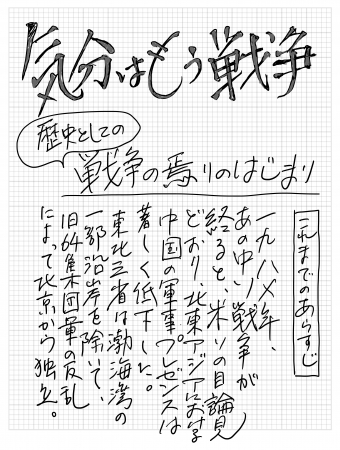 気分はもう戦争
歴史としての
戦争の焉りのはじまり
これまでのあらすじ
一九八×年、
あの中ソ戦争が
経ると、米ソの目論見
どおり、北東アジアにおける
中国の軍事プレゼンスは
著しく低下した。
東北三省は渤海湾の
一部沿岸を除いて、
旧64集団軍の反乱
によって北京から独立。